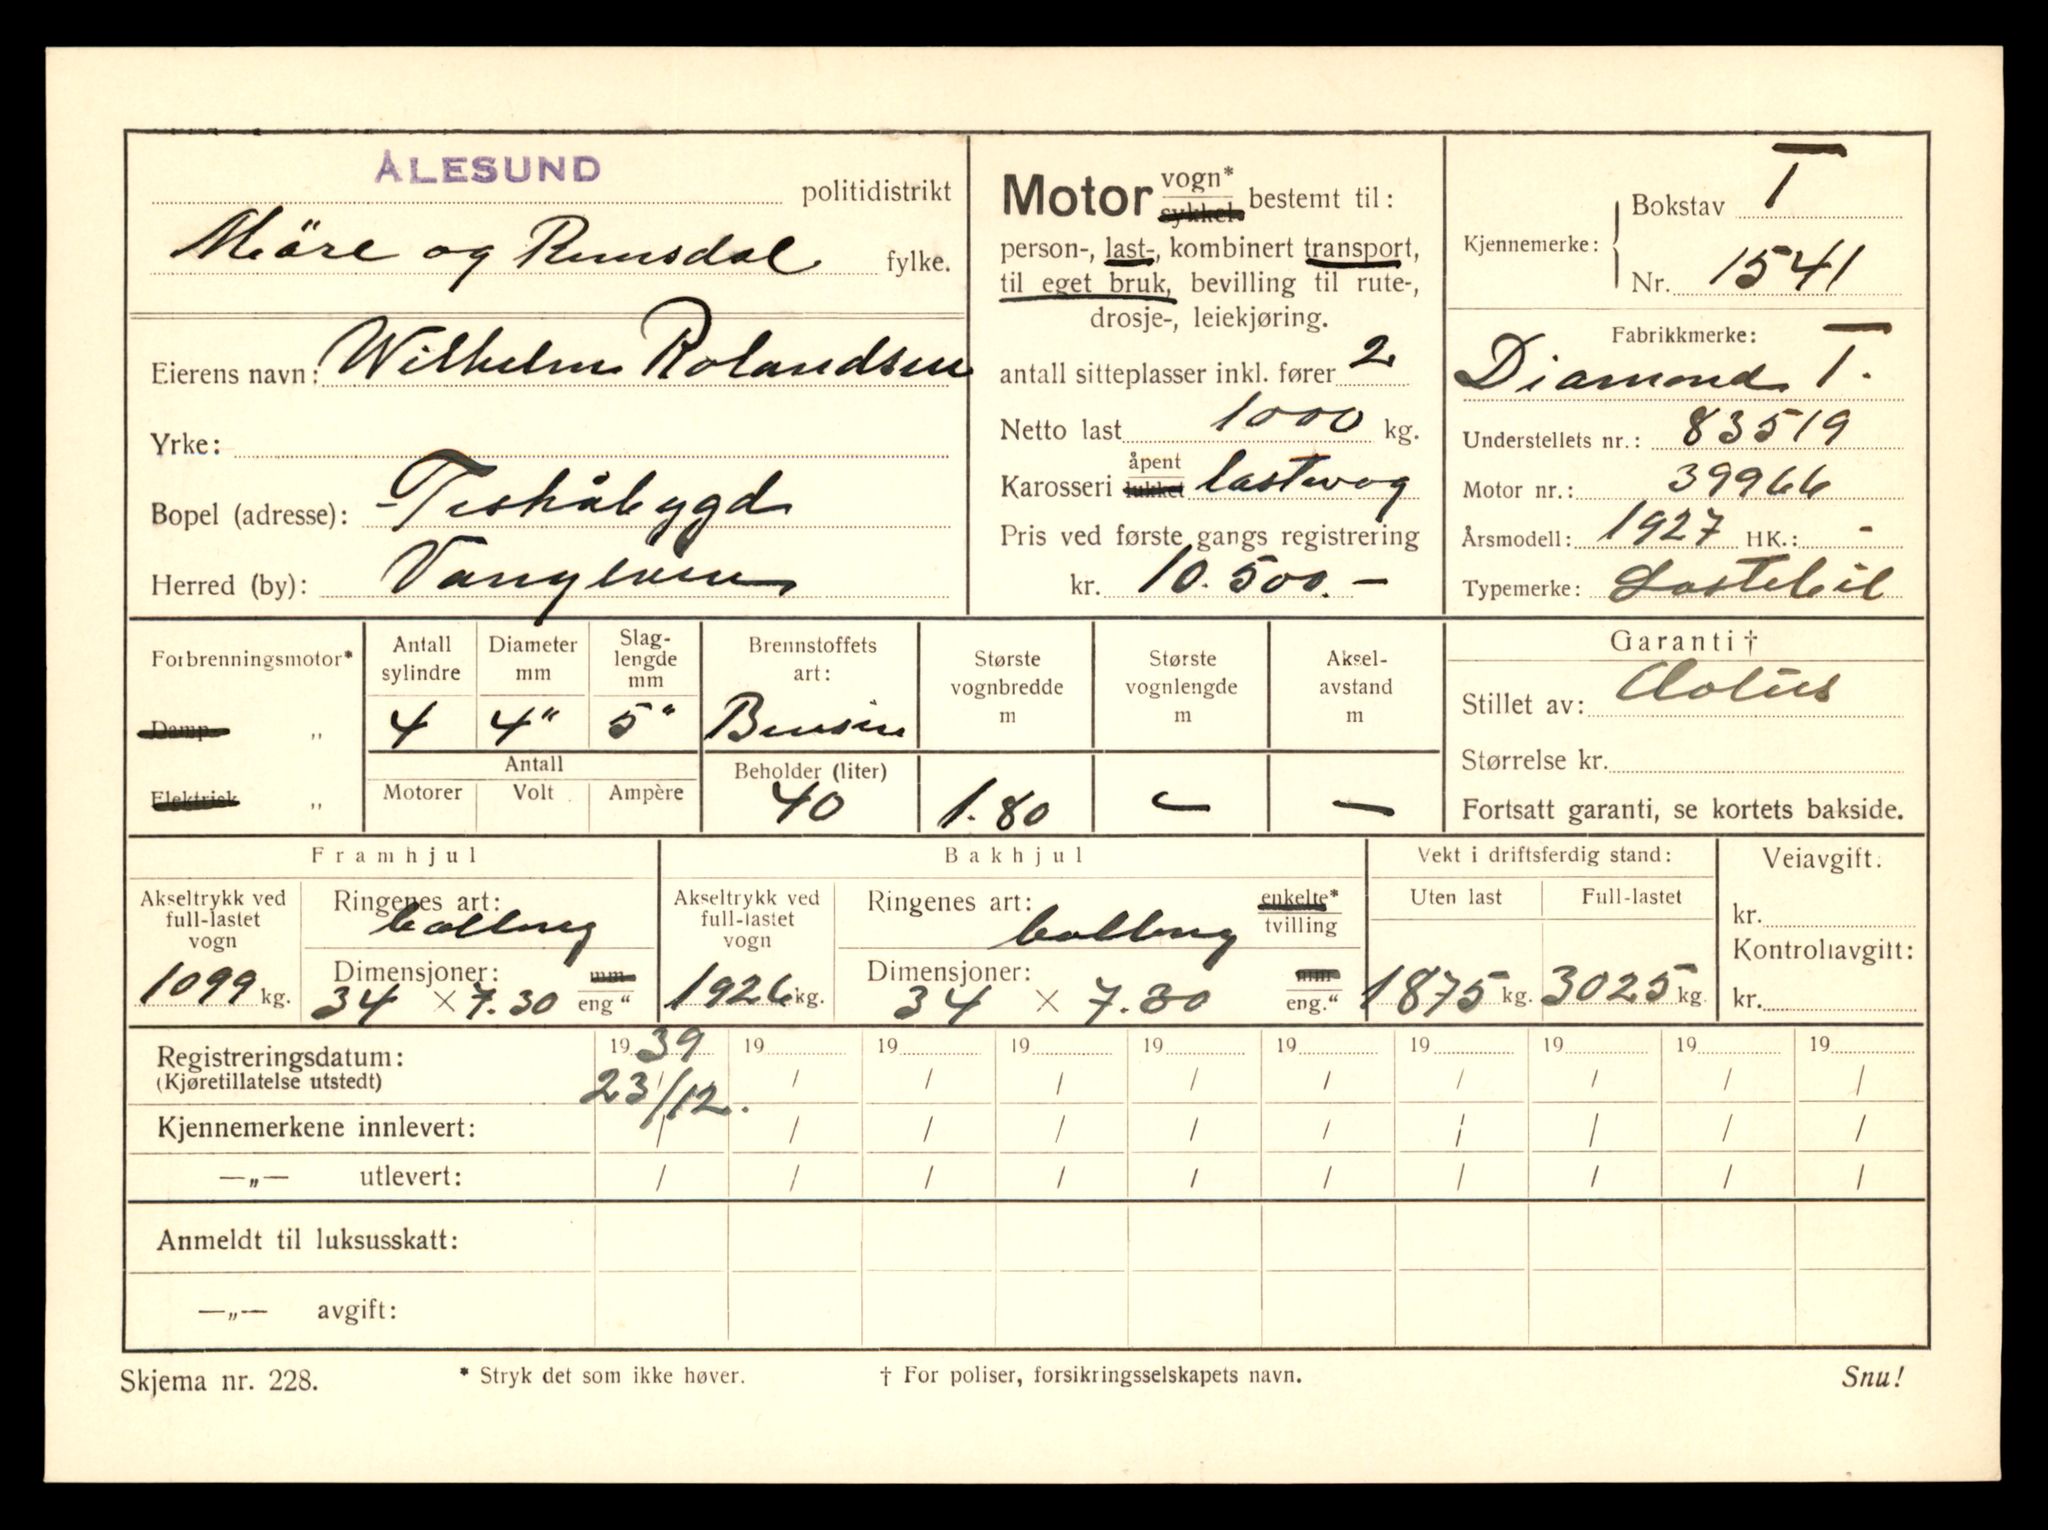 ÅLESUND politidistrikt
Möre og Rumsdal fylke.
Eierens navn: Wilhelm Rolandsen
Yrke:
Bopel (adresse): Fiskåbygd
Herred (by): Vanylven
Motor vogn* sykkel bestemt til:
person-, last-, kombinert transport,
til eget bruk, bevilling til rute-,
drosje-, leiekjøring.
antall sitteplasser inkl. fører 2
Netto last 1000 kg.
Karosseri åpent lukket lastevog
Pris ved første gangs registrering
kr. 10.500.-
Kjennemerke: Bokstav T
Nr. 1541
Fabrikkmerke:
Diamond T.
Understellets nr.: 83519
Motor nr.: 39966
Årsmodell: 1927 HK.: -
Typemerke: Lastebil
Forbrenningsmotor*
Damp- „
Elektrisk „
Antall sylindre 4
Diameter mm 4"
Slaglengde mm 5"
Antall
Motorer Volt Ampère
Brennstoffets art: Bensin
Beholder (liter) 40
Største vognbredde m 1.80
Største vognlengde m -
Akselavstand m -
Garanti †
Stillet av: Aolus
Størrelse kr.
Fortsatt garanti, se kortets bakside.
Framhjul
Akseltrykk ved full-lastet vogn 1099 kg.
Ringenes art: ballong
Dimensjoner: mm
34 × 7.30 eng "
Bakhjul
Akseltrykk ved full-lastet vogn 1926 kg.
Ringenes art: ballong enkelte* tvilling
Dimensjoner: mm
34 × 7.30 eng."
Vekt i driftsferdig stand:
Uten last 1875 kg.
Full-lastet 3025 kg.
Veiavgift:
kr.
Kontrollavgift:
kr.
Registreringsdatum: 1939 19 19 19 19 19 19 19 19 19
(Kjøretillatelse utstedt) 23/12. / / / / / / / / /
Kjennemerkene innlevert: / / / / / / / / / /
—„— utlevert: / / / / / / / / / /
Anmeldt til luksusskatt:
—„— avgift:
Skjema nr. 228. * Stryk det som ikke høver. † For poliser, forsikringsselskapets navn. Snu!